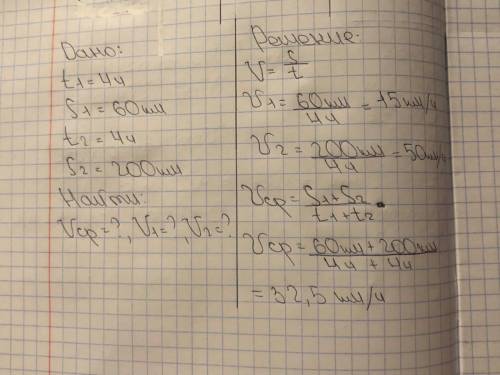 Дано:
t1=4ч
S1=60км
t2=4ч
S2=200км
Найти:
Vср=?, V1=?, V2=?
Решение:
V=S/t
V1=60км/4ч=15км/ч
V2=200км/4ч=50км/ч
Vср=S1+S2/t1+t2
Vср=60км+200км/4ч+4ч
=32,5км/ч